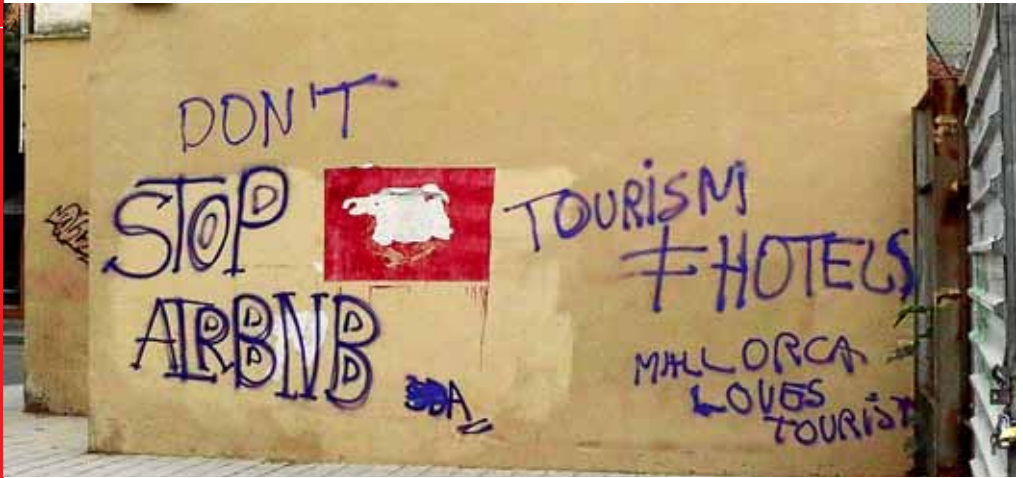 DON'T
STOP
AIRBNB
TOURISM
≠ HOTELS
MALLORCA
LOVES
TOURIST